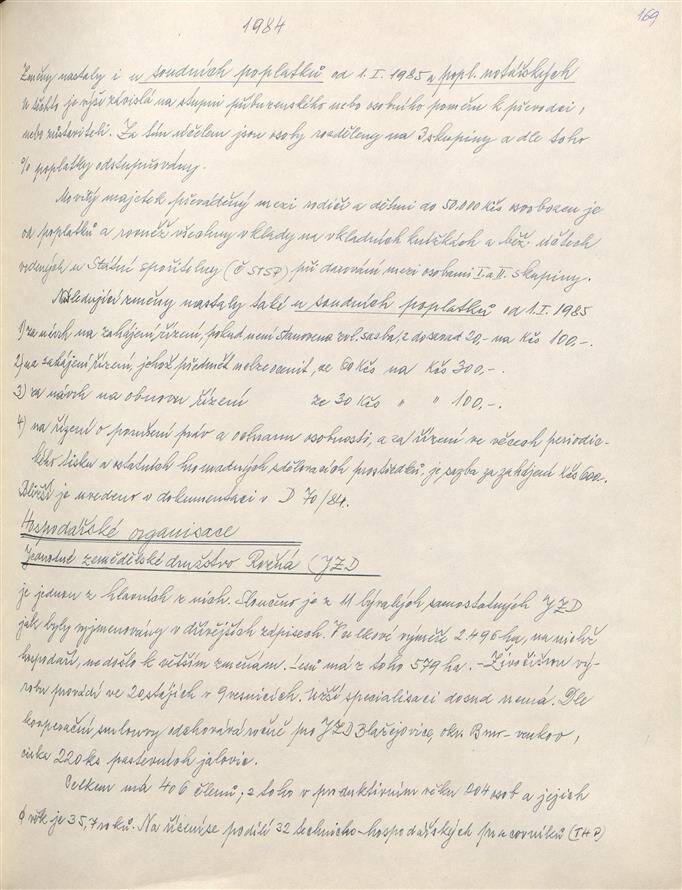 1984
169
Změny nastaly i u soudních poplatků od 1.I.1985 a popl. notářských
U těchto je výše závislá na stupni příbuzenského nebo osobního poměru k převodci,
nebo zůstaviteli. Za tím účelem jsou osoby rozděleny na 3 skupiny a dle toho
% poplatky odstupňovány.
Movitý majetek převáděný mezi rodiči a dětmi do 50.000 Kčs osvobozen je
od poplatků a rovněž všechny vklady na vkladních knížkách a běž. účtech
vedených u Státní spořitelny (ČSTSP) při darování mezi osobami I a II. skupiny.
Následující změny nastaly také u soudních poplatků od 1.I.1985
1) za návrh na zahájení řízení, pokud není stanovena zvl. sazba, z dosavad 20,- na Kčs 100,-.
2) na zahájení řízení, jehož předmět nelze ocenit, ze 60 Kčs na Kčs 300,-.
3) za návrh na obnovu řízení ze 30 Kčs " " 100,-.
4) na řízení o porušení práv a ochranu osobnosti, a za řízení ve věcech periodic-
kého tisku a ostatních hromadných sdělovacích prostředků, je sazba za zahájení Kčs 600.
Bližší je uvedeno v dokumentaci v D 70/84.
Hospodářské organisace
Jednotné zemědělské družstvo Rožná (JZD
je jednou z hlavních z nich. Sloučeno je z 11 bývalých samostatných JZD
jak byly vyjmenovány v dřívějších zápisech. V celkové výměře 2.496 ha, na nichž
hospodaří, nedošlo k větším změnám. Lesů má z toho 579 ha. - Živočišnou vý-
robu provádí ve 20 stájích v 9 vesnicích. Užší specialisaci dosud nemá. Dle
kooperační smlouvy odchovává ročně pro JZD Blažejovice, okr. Brno-venkov,
cirka 220 ks pastevních jalovic.
Celkem má 406 členů, z toho v produktivním věku 204 osob a jejich
ϕ věk je 35,7 roků. Na řízení se podílí 32 technicko-hospodářských pracovníků (THP)